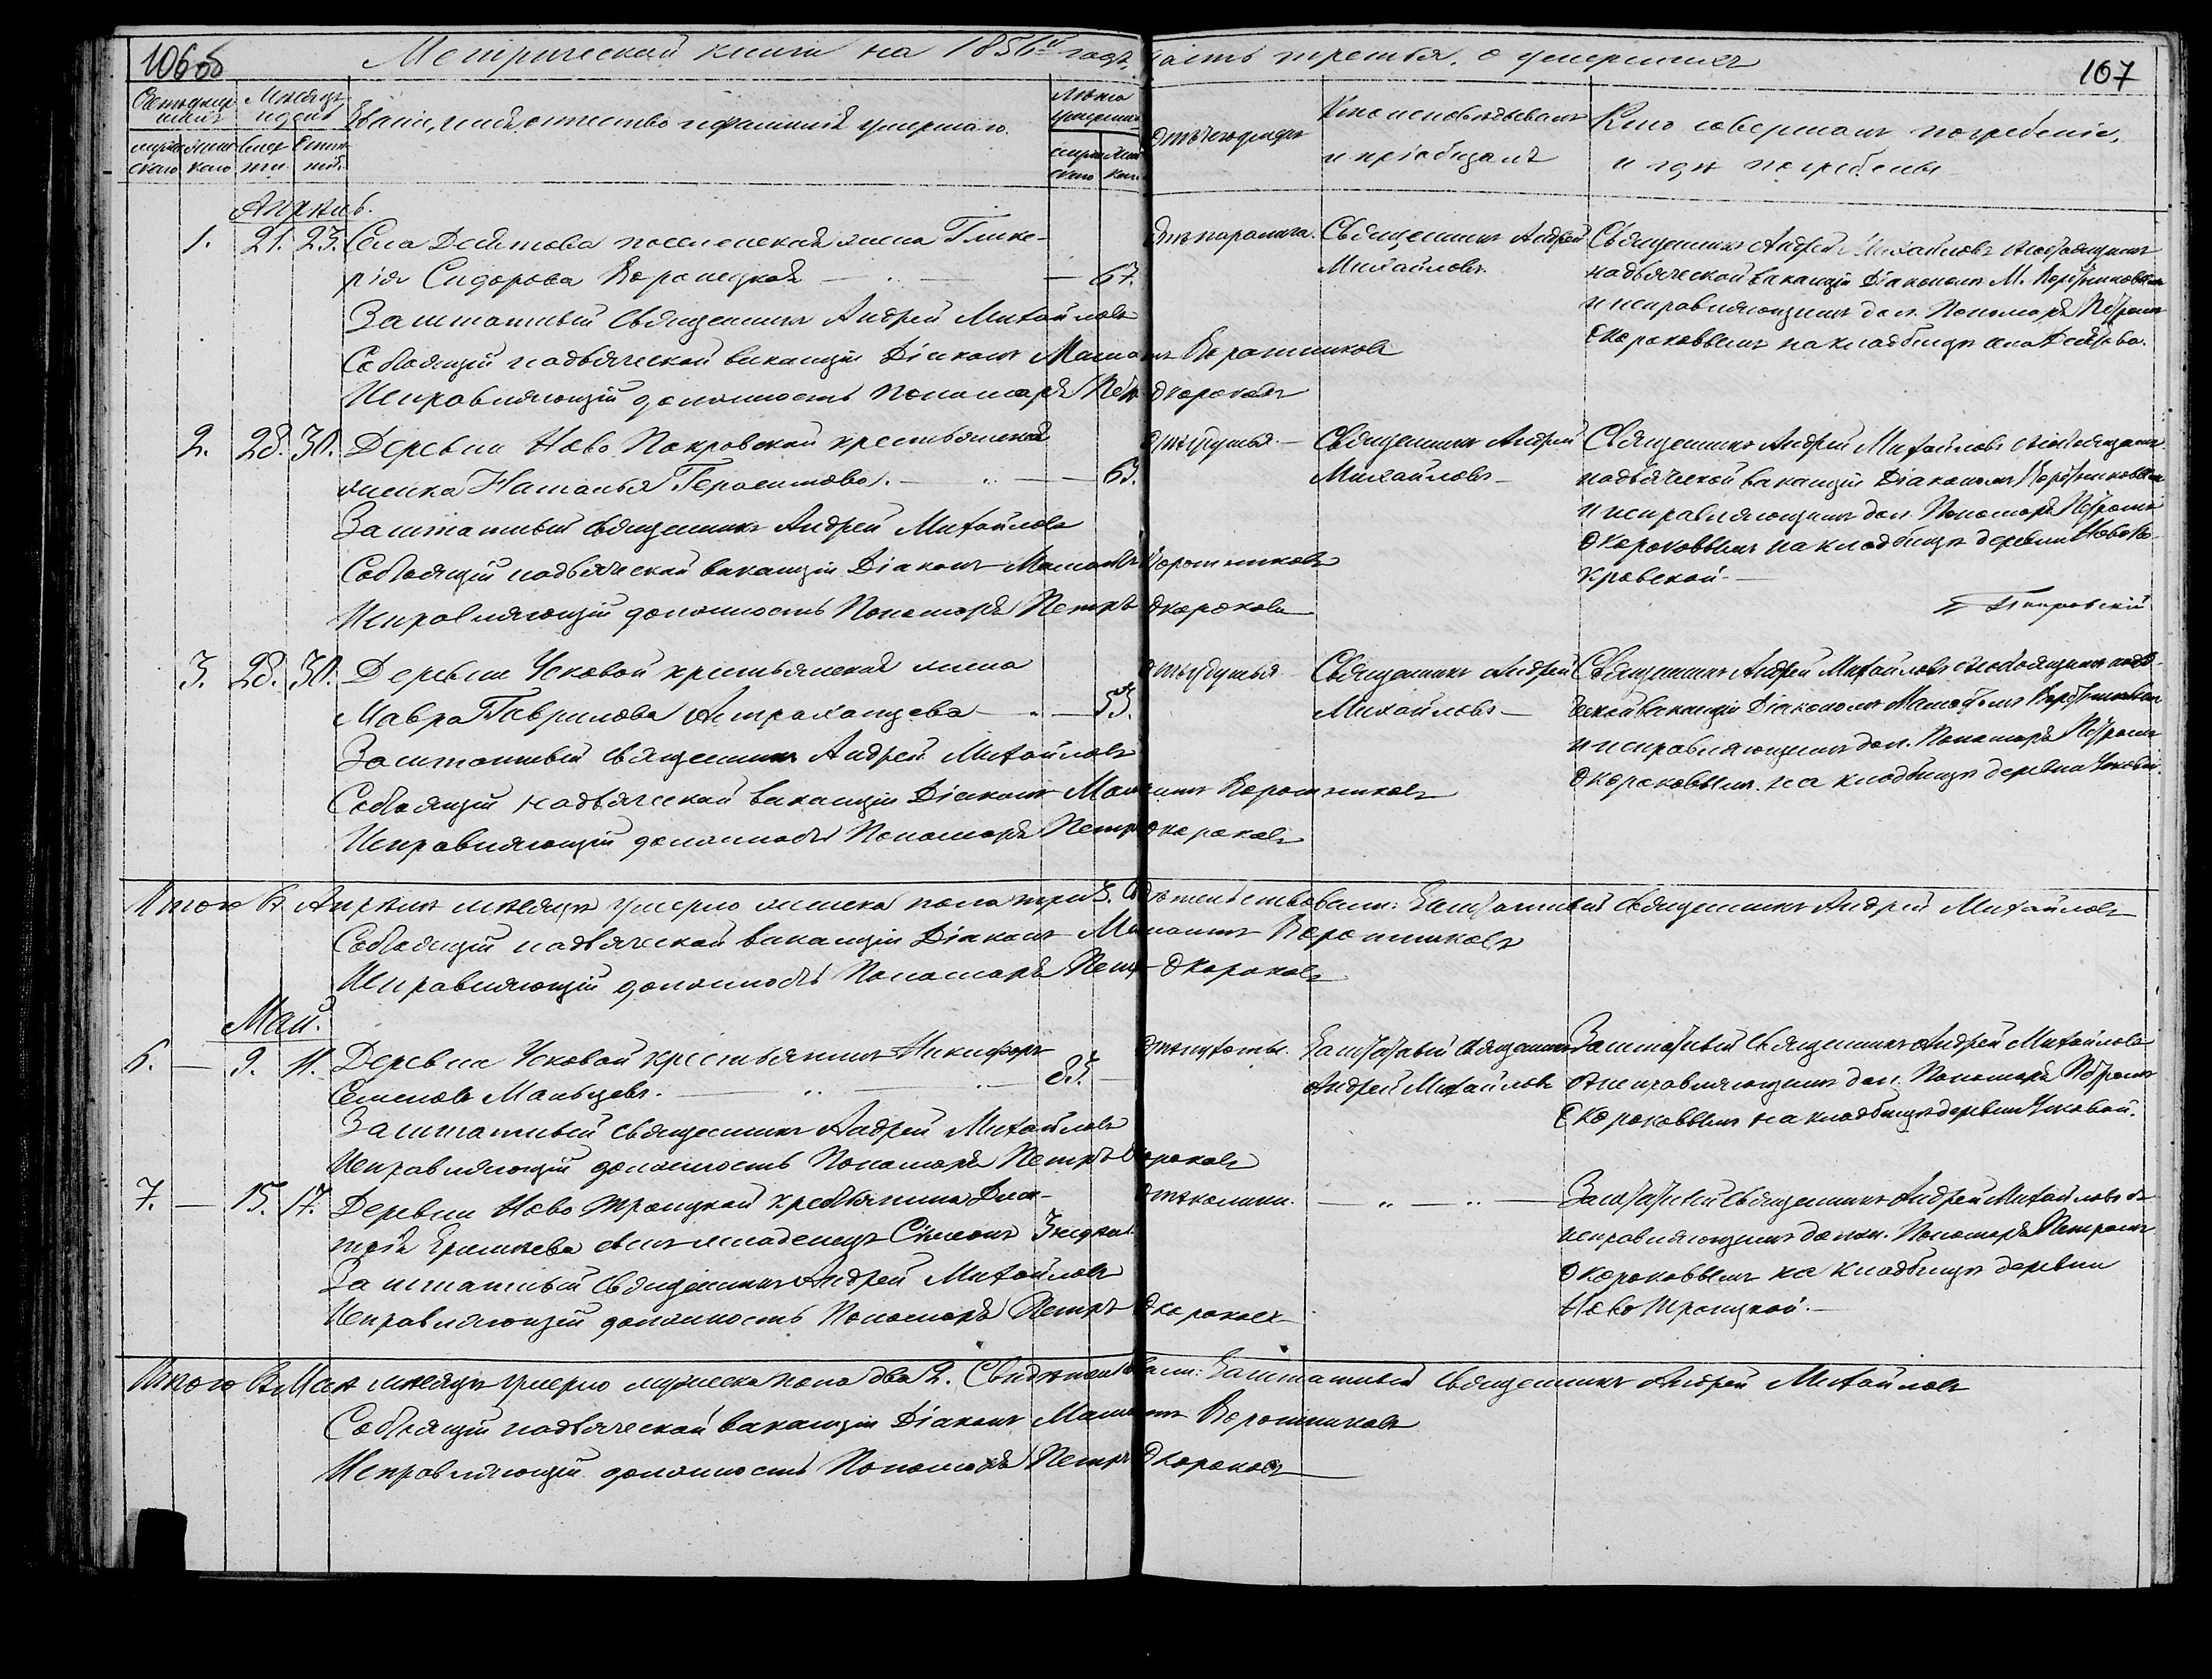 106об
Метрической книги на 1856й годъ, часть третья, о умершихъ
107
Счетъ умершихъ
Мѣсяцъ и день
Званіе, имя, отчество и фамилія умершаго.
Лѣта умершаго
Отъ чего умеръ
Кто исповѣдывалъ и пріобщалъ
Кто совершалъ погребеніе, и гдѣ погребены
мужескаго
женскаго
смерти
мужескаго
женскаго
Апрѣль.
1. 21. 23. Села Десятова жена Глике-
рія Сидорова Вороницкая — 67.
Заштатный священникъ Андрей Михайловъ
Состоящій на дьяческой ваканціи Діаконъ Воротниковъ
Исправляющій должность Пономаря Петръ Окороковъ
Отъ паралича.
Священникъ Андрей
Михайловъ.
Священникъ Андрей Михайловъ съ состоящимъ
на дьяческой ваканціи Діакономъ М. Воротниковымъ
и исправляющимъ дол. Пономаря Петромъ
Окороковымъ на кладбищѣ села Десятова.
2. 28. 30. Деревни Ново Покровской крестьянская
женка Наталья Герасимова. — 63.
Заштатный священникъ Андрей Михайловъ
Состоящій на дьяческой ваканціи Діаконъ Воротниковъ
Исправляющій должность Пономаря Петръ Окороковъ
Отъ удушья.
Священникъ Андрей
Михайловъ
Священникъ Андрей Михайловъ съ состоящимъ
на дьяческой ваканціи Діакономъ Воротниковымъ
и исправляющимъ дол. Пономаря Петромъ
Окороковымъ на кладбищѣ деревни Ново По-
кровской.
3. 28. 30. Деревни Усковой крестьянская жена
Мавра Гаврилова Астраханцева — 53.
Заштатный священникъ Андрей Михайловъ
Состоящій на дьяческой ваканціи Діаконъ Воротниковъ
Исправляющій должность Пономаря Петръ Окороковъ
Отъ удушья
Священникъ Андрей
Михайловъ
Священникъ Андрей Михайловъ съ состоящимъ на дья-
ческой ваканціи Діакономъ Воротниковымъ
и исправляющимъ дол. Пономаря Петромъ
Окороковымъ на кладбищѣ деревни Усковой.
Итого въ Апрѣлѣ мѣсяцѣ умерло женска пола три 3. Свидѣтельствовали: Заштатный священникъ Андрей Михайловъ
Состоящій на дьяческой ваканціи Діаконъ Воротниковъ
Исправляющій должность Пономаря Петръ Окороковъ
Май.
6. — 9. 11. Деревни Усковой крестьянинъ Никифоръ
Семеновъ Мальцевъ. — 83.
Заштатный священникъ Андрей Михайловъ
Исправляющій должность Пономаря Петръ Окороковъ
Заштатный священникъ
Андрей Михайловъ
Заштатный священникъ Андрей Михайловъ
съ исправляющимъ дол. Пономаря Петромъ
Окороковымъ на кладбищѣ деревни Усковой.
7. — 15. 17. Деревни Ново Троицкой крестьянина Дми-
трія Еремѣева сынъ младенецъ Симеонъ 3 недѣл.
Заштатный священникъ Андрей Михайловъ
Исправляющій должность Пономаря Петръ Окороковъ
— „ — „ —
Заштатный священникъ Андрей Михайловъ съ
исправляющимъ должн. Пономаря Петромъ
Окороковымъ на кладбищѣ деревни
Ново Троицкой.
Итого въ Маѣ мѣсяцѣ умерло мужеска пола два 2. Свидѣтельствовали: Заштатный священникъ Андрей Михайловъ
Состоящій на дьяческой ваканціи Діаконъ Воротниковъ
Исправляющій должность Пономаря Петръ Окороковъ